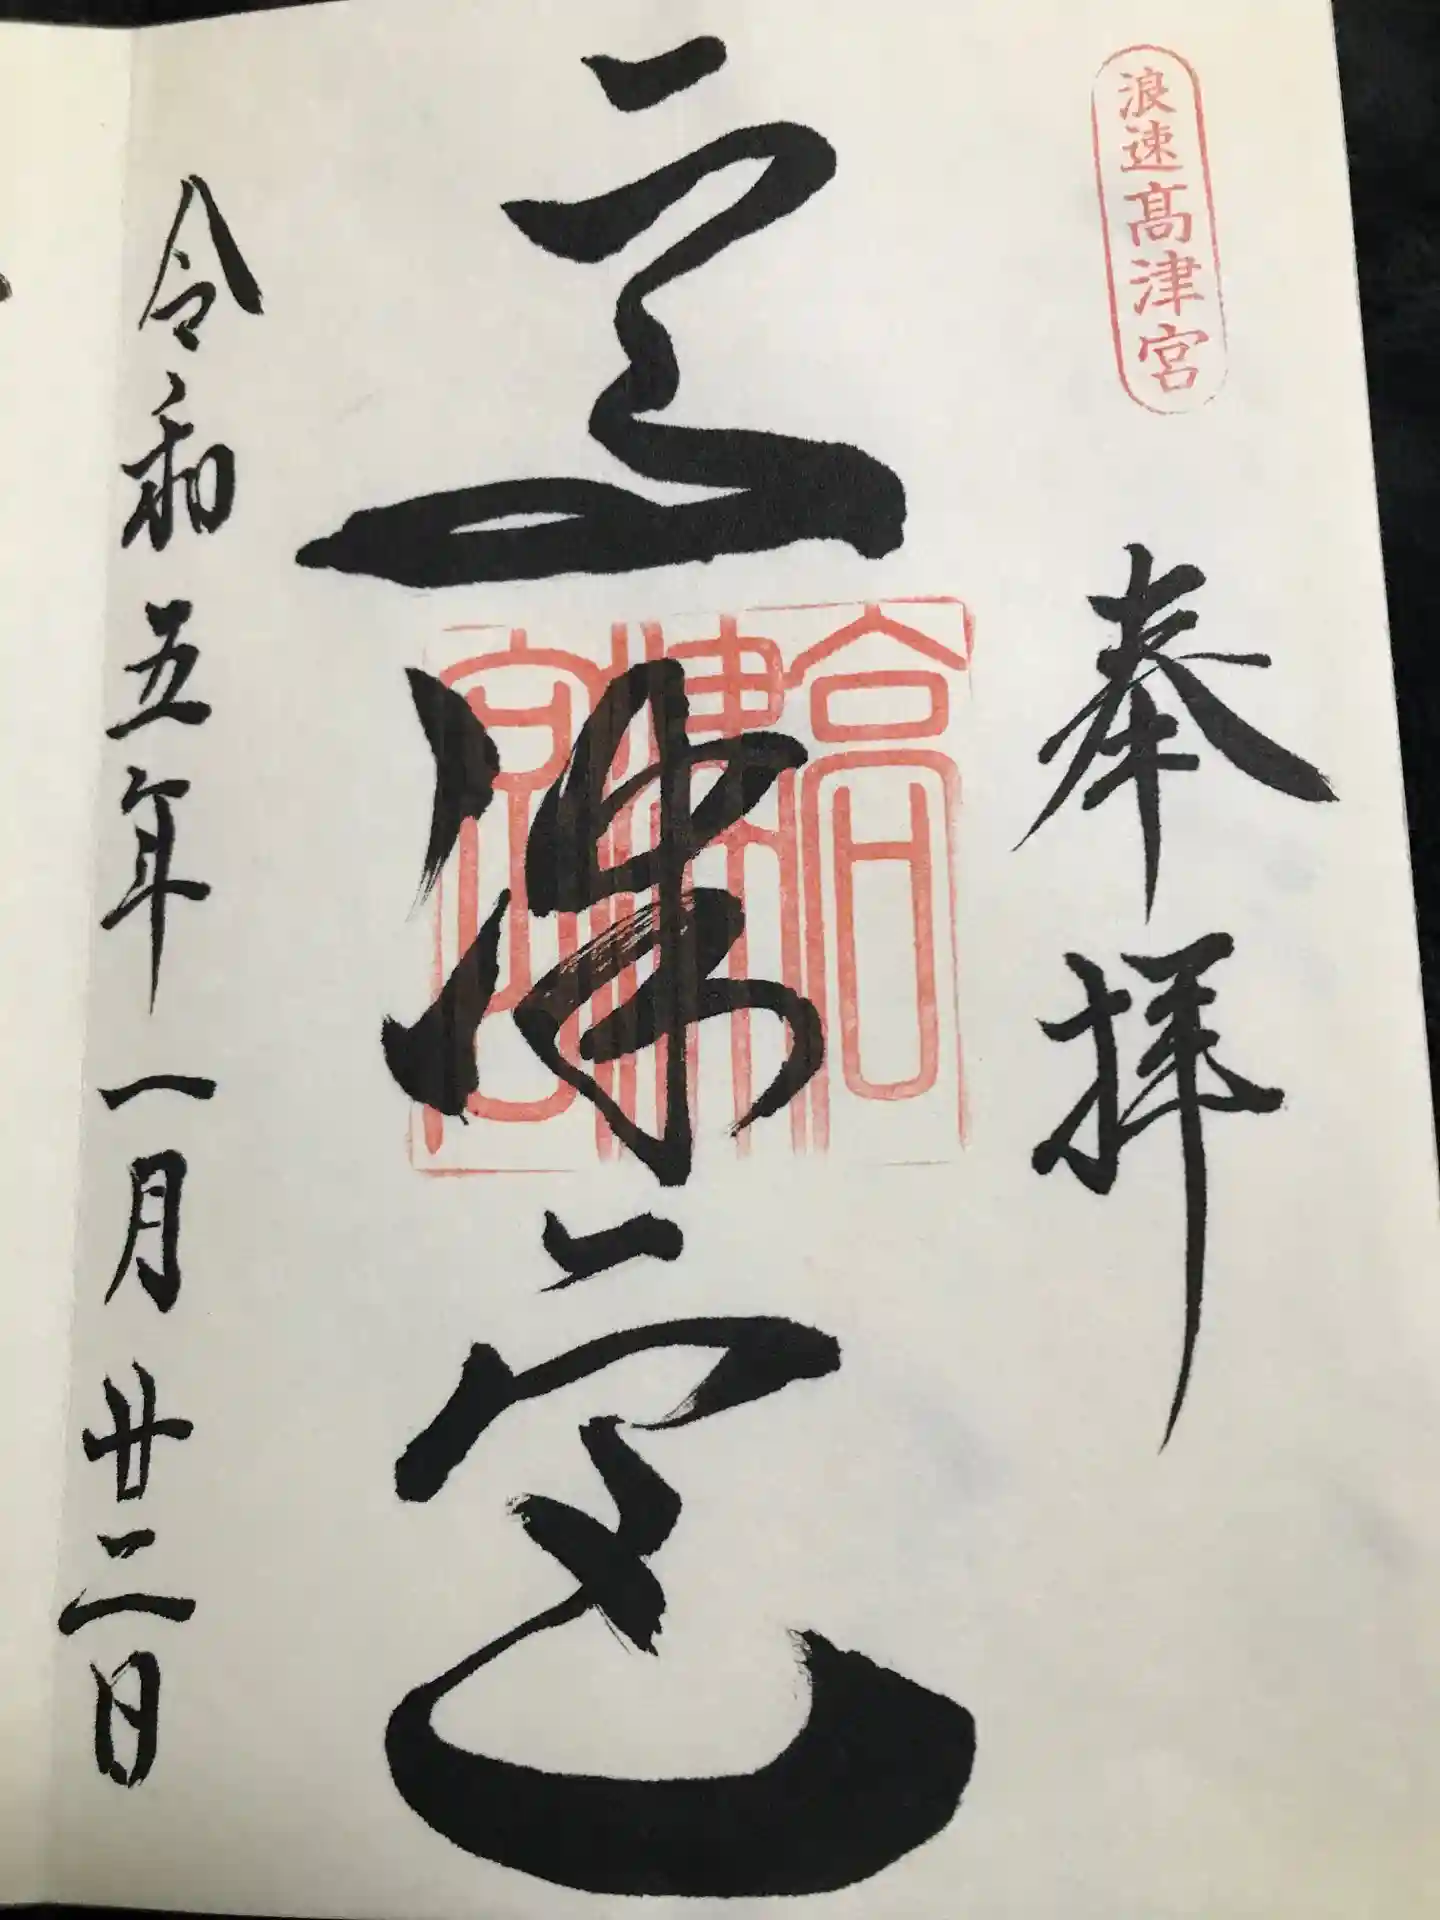 浪速高津宮
奉拝
高津宮
高津宮
令和五年一月廿二日